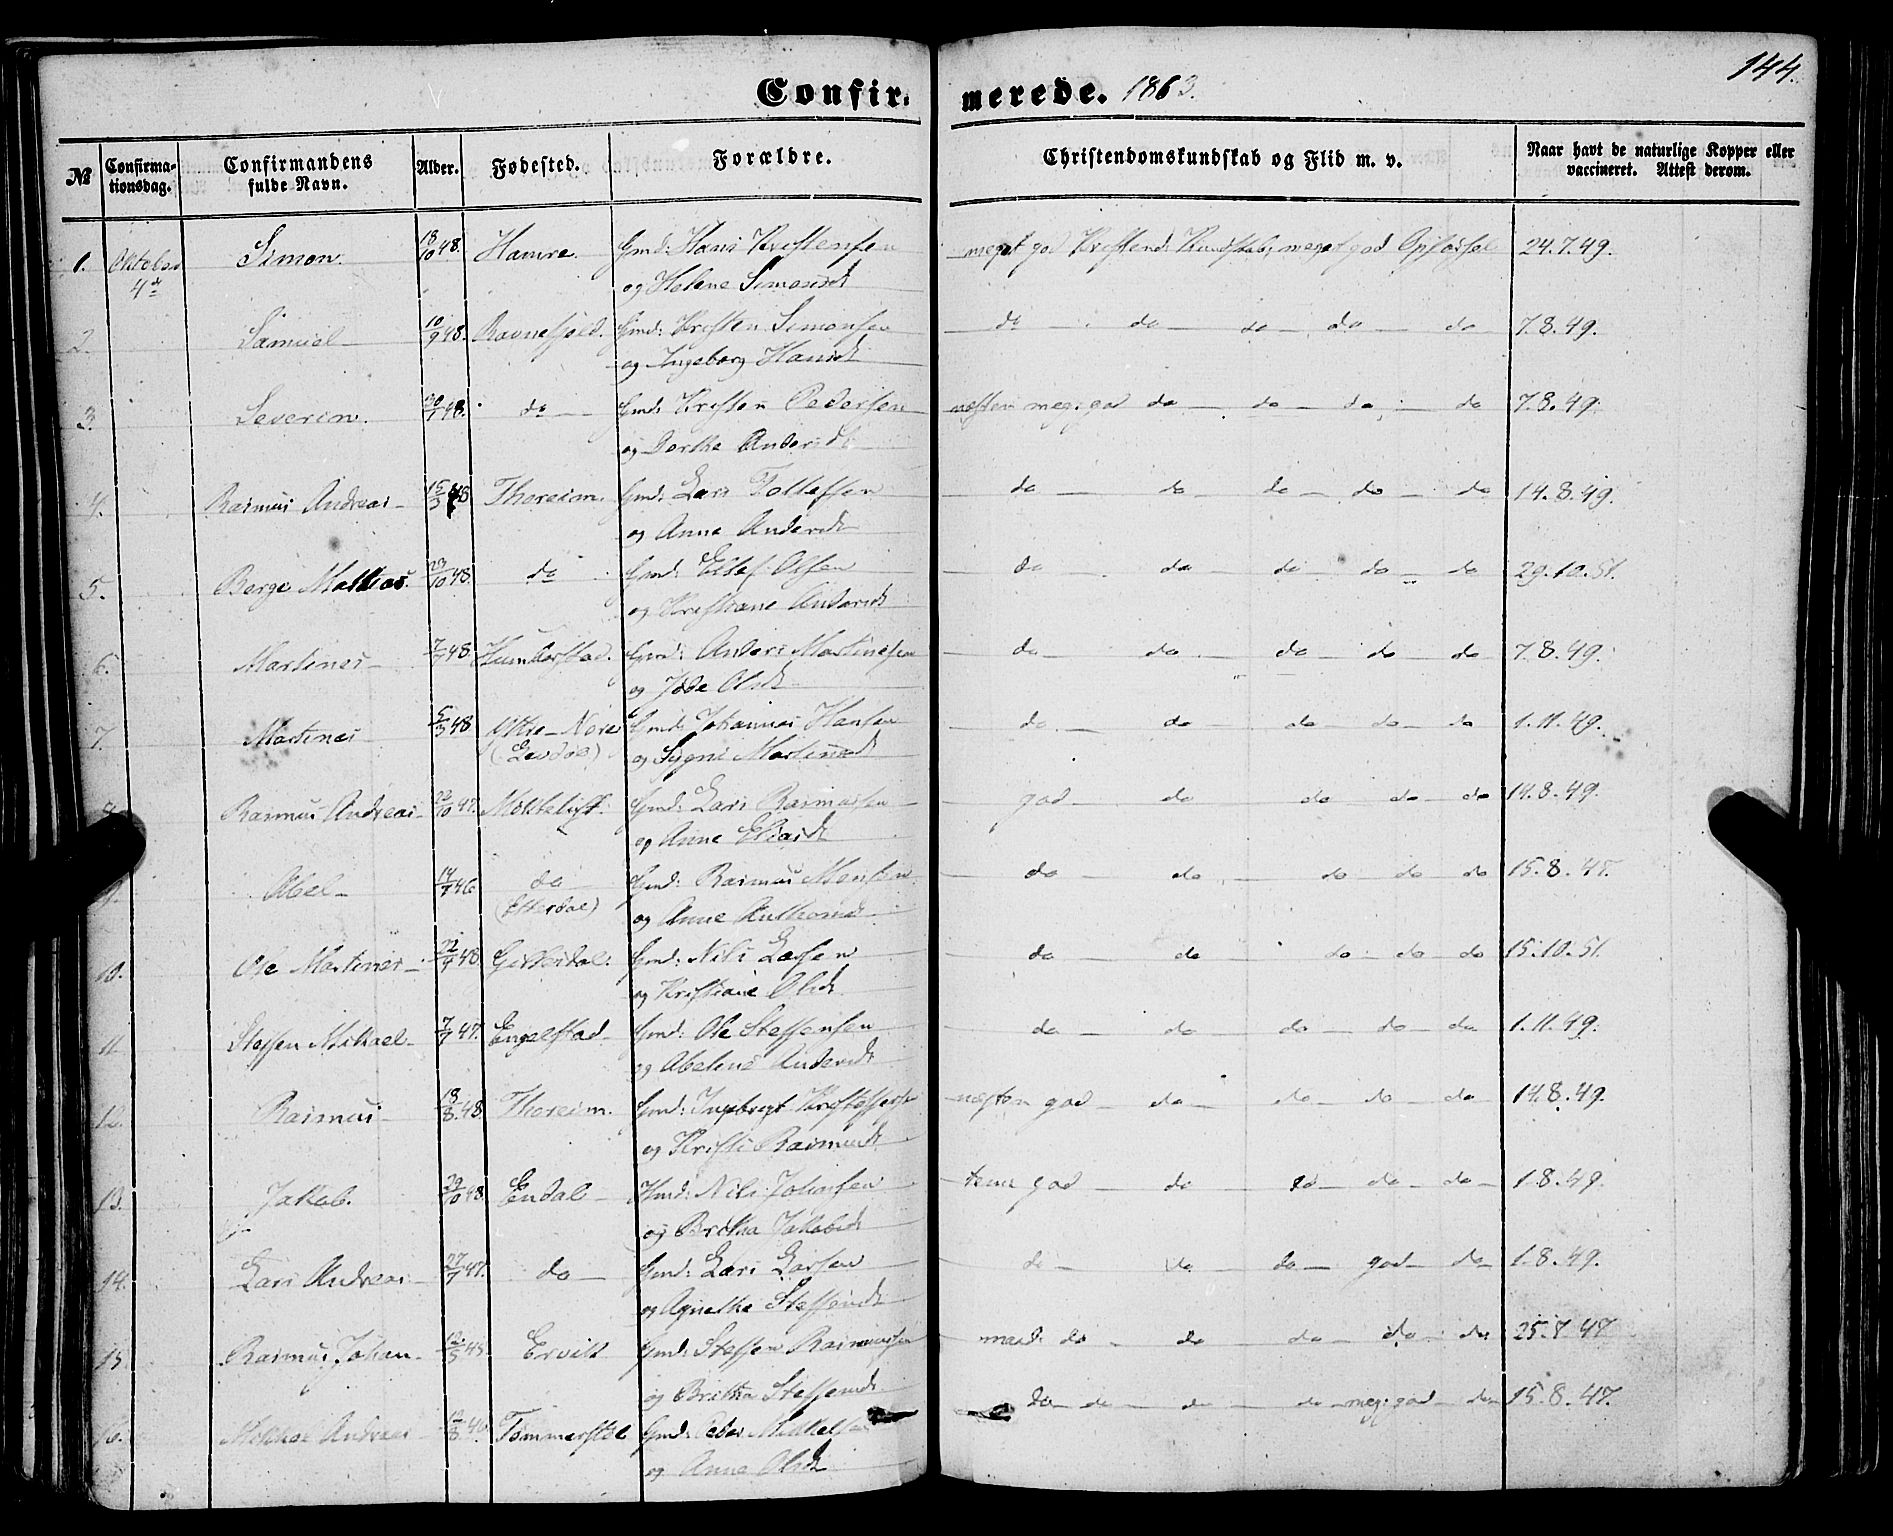 144.
Confirmerede. 1863.
№ Confirmationsdag. Confirmandens fulde Navn. Alder. Fødested. Forældre. Christendomskundskab og Flid m. v. Naar havt de naturlige Kopper eller vaccineret. Attest derom.
1. Oktober Simon. 18/10 48. Hamre. Gmd: Hans Kristensen meget god Kristend: Kundskab; meget god Opførsel 24.7.49.
4de og Helene Simonsdt
2. Samuel 10/9 48. Ravnefjeld. Gmd: Kristen Simonsen do do do do do 7.8.49.
og Ingeborg Hansdt
3. Severin. 30/7 48. do Gmd: Kristen Pedersen næsten meg: god do do do do 7.8.49.
og Dorthe Andersdt
4. Rasmus Andreas 15/3 48 Thoreim. Gmd: Lars Tollefsen do do do do do 14.8.49.
og Anne Andersdt
5. Berge Mathias. 23/10 48. do Gmd: Ellef Olsen do do do do do 29.10.51.
og Kristiane Andersdt
6. Martines 7/7 48. Humberstad. Gmd: Anders Martinesen do do do do do 7.8.49.
og Olsdt
7. Martines 5/3 48 Nore Gmd: Johannes Hansen do do do do do 1.11.49.
og Sygni Martinusdt
8. Rasmus Andreas 22/10 47. Gmd: Lars Rasmussen god do do do do 14.8.49.
og Anne Eliasdt
9. Abel 14/7 46. do Gmd: Rasmus Monsen do do do do do 15.8.47.
og Anne Anthonsdt
10. Ole Martines 22/7 48. Gmd: Nils Larsen do do do do do 15.10.51.
og Kristiane Olsdt
11. Steffen Mikael 7/7 47. Engelstad Gmd: Ole Steffensen do do do do do 1.11.49.
og Abelone Andersdt
12. Rasmus 18/8 48. Thoreim. Gmd: Ingebrigt næsten god do do do do 14.8.49.
og Kristi Rasmusdt
13. Jakob. 29/10 48. Endal Hmd: Nils Johansen temm god do do do do 1.8.49.
og Britha Jakobsdt
14. Lars Andreas 27/7 47. do Gmd: Lars Larsen do do do god do 1.8.49.
og Agnethe Steffensdt
15. Rasmus Johan 12/5 45. Ervik Gmd: Steffen Rasmussen maad: do do do do do 25.7.47
og Britha Steffensdt
16. Andreas 12/8 46. Tommerstøl Gmd: Peder Mikkelsen do do do do meg: god do 15.8.47.
og Anne Olsdt